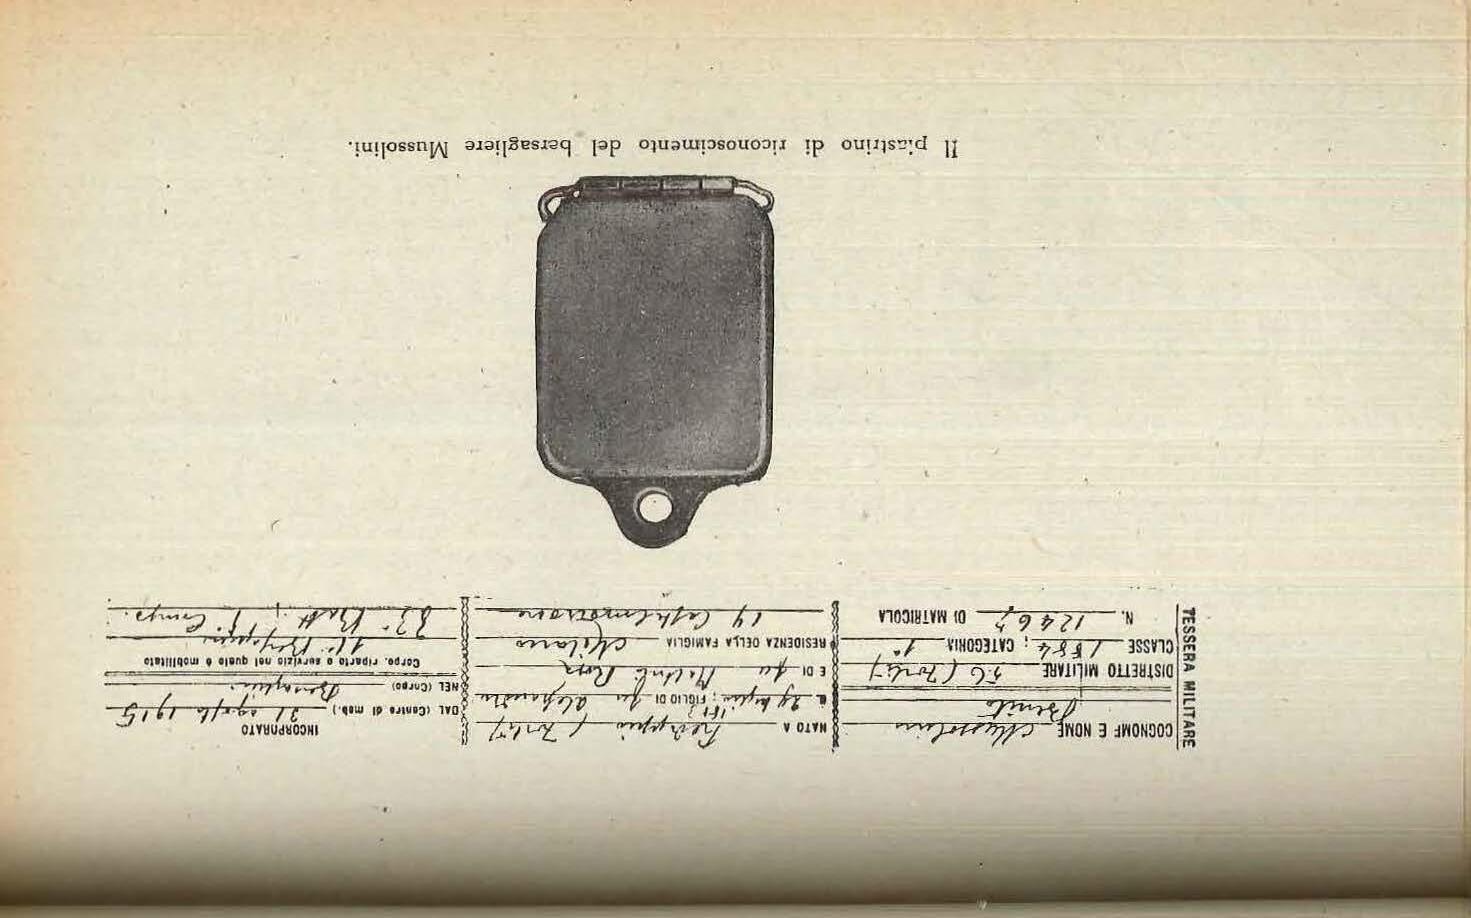 TESSERA MILITARE
COGNOME E NOME Mussolini
Benito
DISTRETTO MILITARE (Forlì)
CLASSE 1884; CATEGORIA 1ª
N. 12467 DI MATRICOLA
NATO A Predappio (Forlì)
29 luglio 1883; FIGLIO DI fu Alessandro
E DI fu Maltoni Rosa
RESIDENZA DELLA FAMIGLIA Milano
19 Castelmorrone
INCORPORATO
DAL (Centro di mob.) 31 agosto 1915
NEL (Corpo) Bersaglieri
Corpo, riparto o servizio nel quale è mobilitato
11º Bersaglieri
33º Batt. Comp.
Il piastrino di riconoscimento del bersagliere Mussolini.